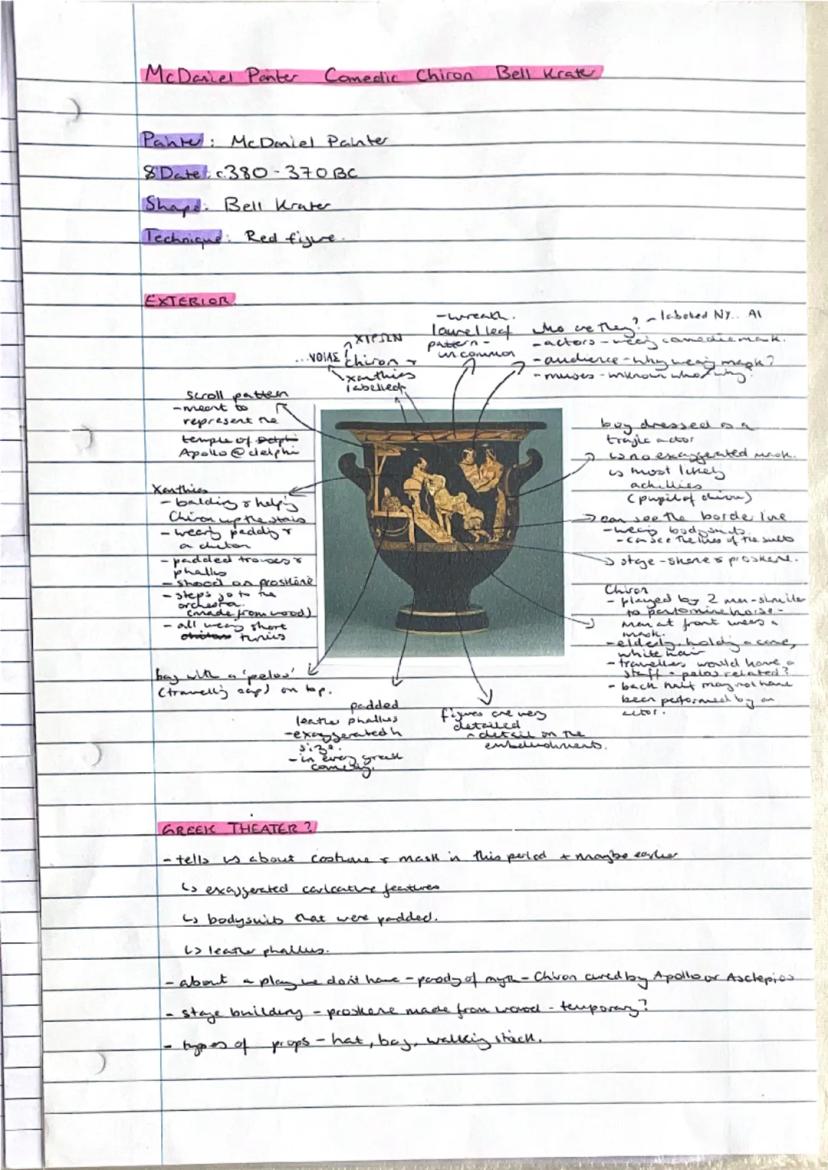 McDaniel Painter Comedic Chiron Bell Krater
Painter: McDaniel Painter
Date: c.380 - 370 BC
Shape: Bell Krater
Technique: Red figure.
EXTERIOR
XIPΩN
...VOIAS
chiron &
xanthias
labelled
- wreath.
laurel leaf
pattern -
uncommon
who are they? - labeled NY.. AI
- actors - wearing comedic mask.
- audience - why wearing mask?
- muses - unknown who/why?
scroll pattern
- meant to
represent the
temple of Delphi
Apollo @ delphi
Xanthias
- balding & helping
Chiron up the stairs
- wearing padding &
a chiton
- padded trousers &
phallus
- stood on proskene
- steps go to the
orchestra
(made from wood)
- all wearing short
chitons tunics
bag with a 'pelos'
(travelling cap) on top.
padded
leather phallus
- exaggerated in
size.
- in every greek
comedy.
figures are very
detailed
- detail on the
embellishments.
boy dressed as a
tragic actor
↳ no exaggerated mask.
↳ most likely
achillies
(pupil of chiron)
can see the border line
- wearing bodysuits
- can see the lines of the suits
stage - skene & proskene.
Chiron
- played by 2 men - similar
to pantomime horse -
man at front wears a
mask.
- elderly, holding a cane,
white hair
- travellers would have a
staff - pelos related?
- back half may not have
been performed by an
actor.
GREEK THEATER?
- tells us about costume & mask in this period & maybe earlier
↳ exaggerated caricature features
↳ bodysuits that were padded.
↳ leather phallus.
- about a play we don't have - parody of myth - Chiron cured by Apollo or Asclepios
- stage building - proskene made from wood - temporary?
- types of props - hat, bag, walking stick.